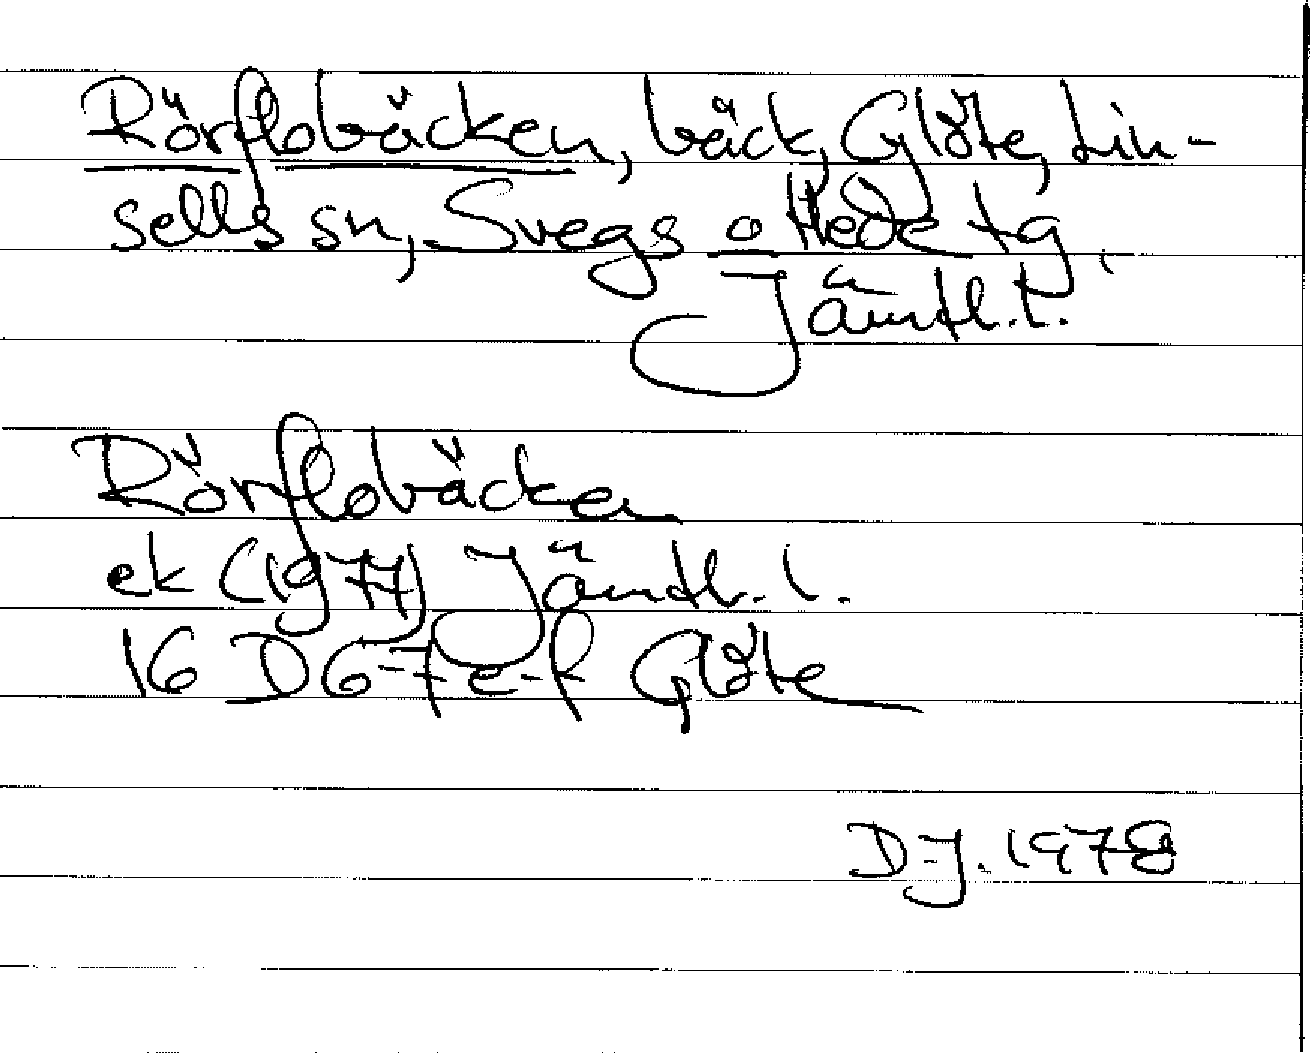 Rörflobäcken, bäck, Glöte, Lin-
sells sn, Svegs o Hede tg,
Jämtl. l.
Rörflobäcken
ek (1977) Jämtl. l.
16 D6-7e-f Glöte
D-J. 1978